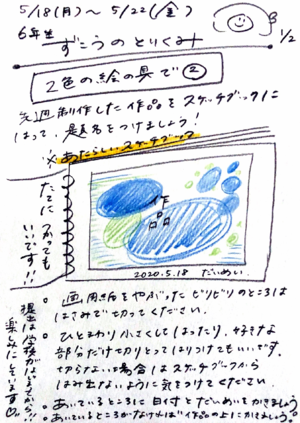 5/18(月)〜5/22(金)
6年生
ずこうのとりくみ
1/2
2色の絵の具で②
先週制作した作品をスケッチブックに
はって、題名をつけましょう!
※あたらしいスケッチブック
たてにつかってもいいです!!
作品
2020.5.18 だいめい
・画用紙をやぶったビリビリのところは
はさみで切ってください。
・ひとまわり小さくしてはったり、好きな
部分だけ切りとってはりつけてもいいです。
切らない場合はスケッチブックから
はみ出ないように気をつけてください。
・あいているところに日付とだいめいをかきましょう
・あいているところがなければ作品の上にかきましょう。
提出は学校がはじまってから!!
楽しみにしています